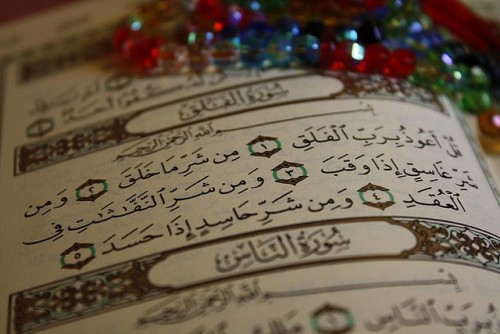 سُورَةُ الْفَلَقِ
بِسْمِ اللَّهِ الرَّحْمَٰنِ الرَّحِيمِ
قُلْ أَعُوذُ بِرَبِّ الْفَلَقِ ١ مِن شَرِّ مَا خَلَقَ ٢ وَمِن
شَرِّ غَاسِقٍ إِذَا وَقَبَ ٣ وَمِن شَرِّ النَّفَّاثَاتِ فِي
الْعُقَدِ ٤ وَمِن شَرِّ حَاسِدٍ إِذَا حَسَدَ ٥
سُورَةُ النَّاسِ
بِسْمِ اللَّهِ الرَّحْمَٰنِ الرَّحِيمِ
بِرَبِّ النَّاسِ ١